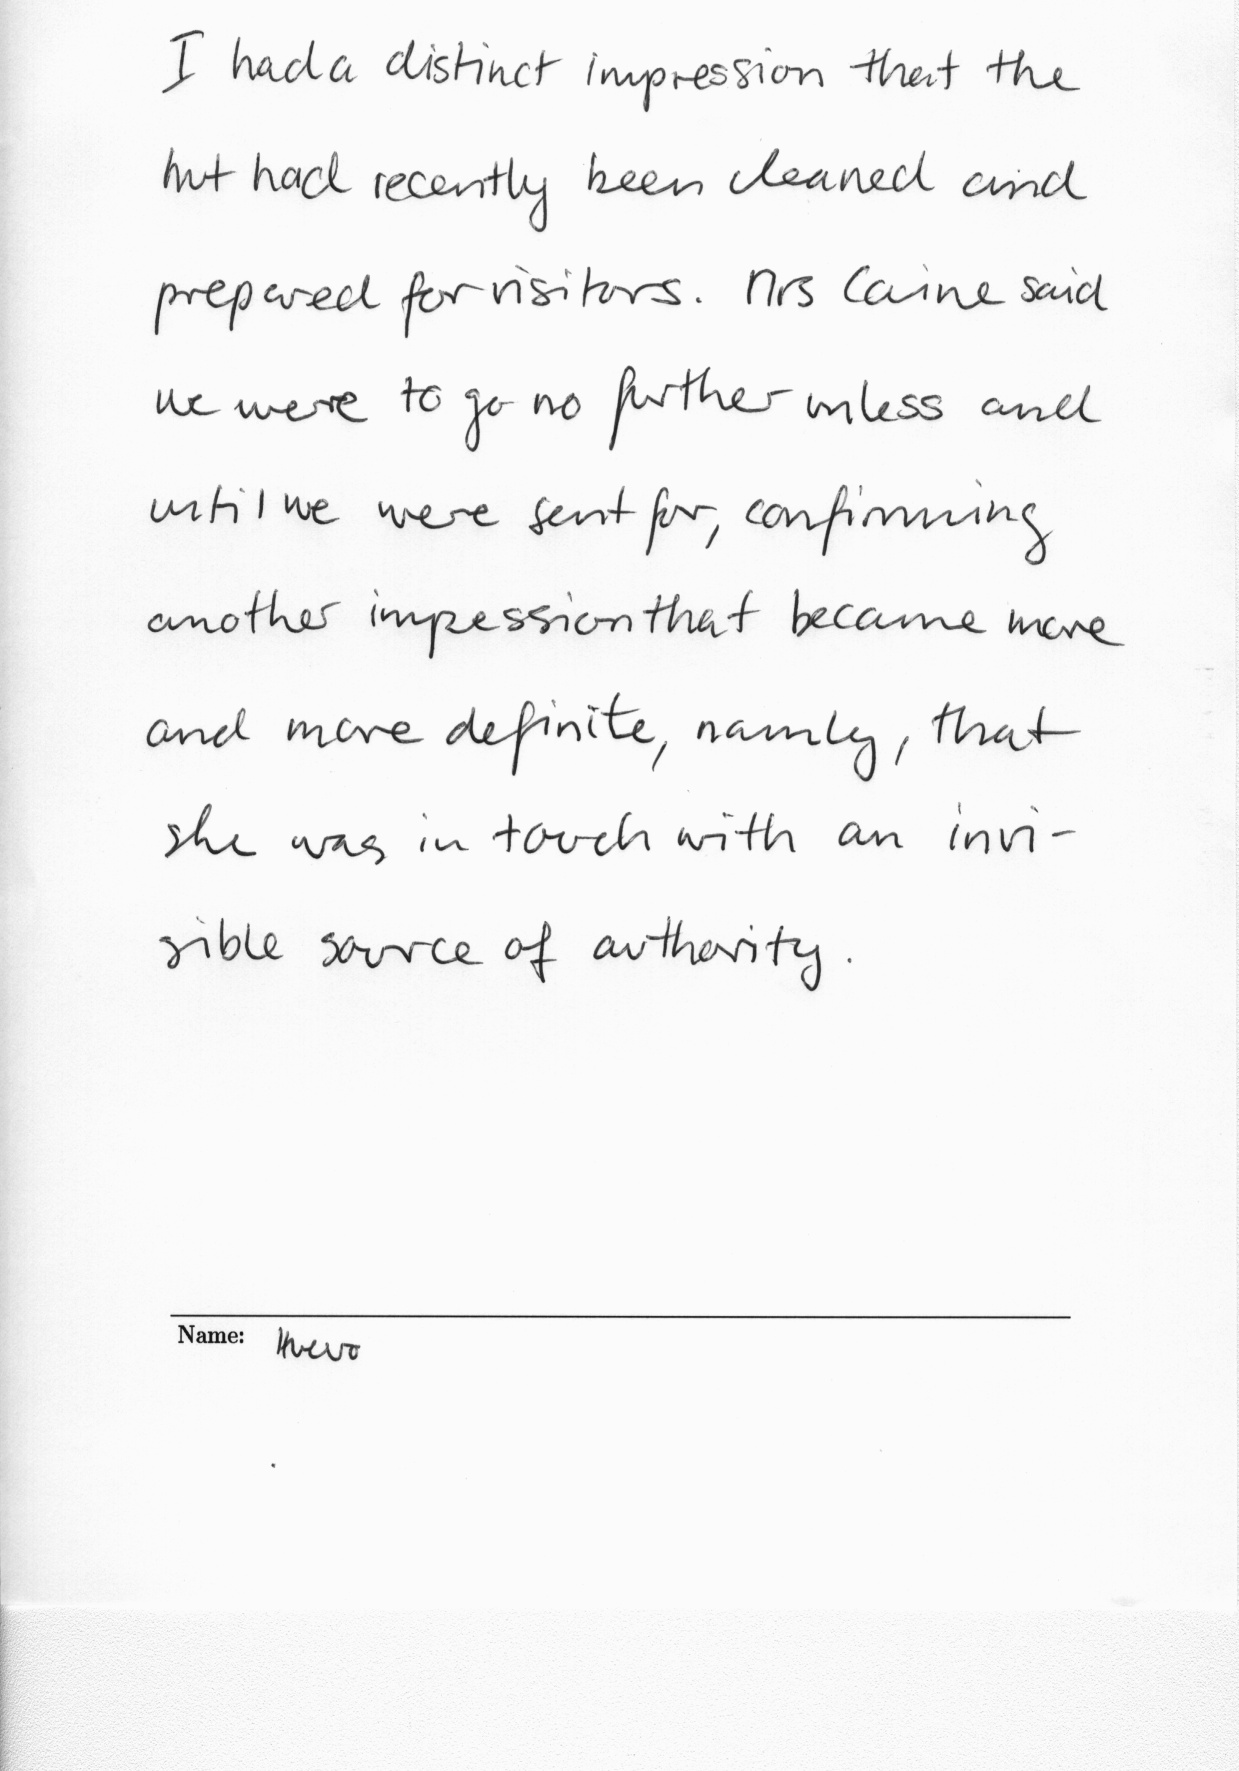 I had a distinct impression that the
hut had recently been cleaned and
prepared for visitors. Mrs Caine said
we were to go no further unless and
until we were sent for, confirming
another impession that became more
and more definite, namly, that
she was in touch with an invi-
sible source of authority.
Name: